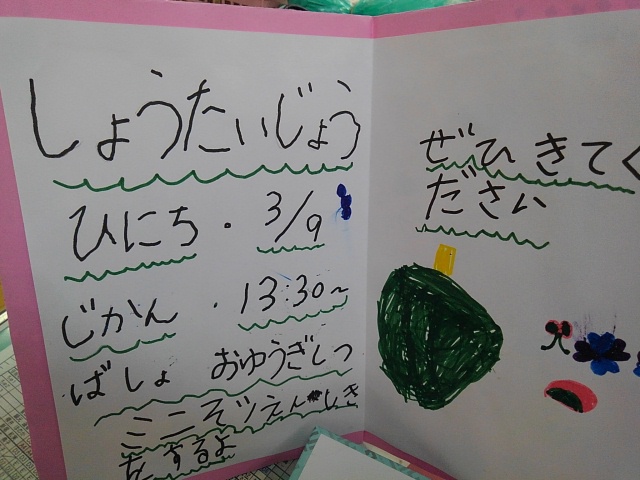 しょうたいじょう
ひにち・3/9
じかん・13:30~
ばしょ おゆうぎしつ
ミニそつえんしき
をするよ
ぜひきてく
ださい